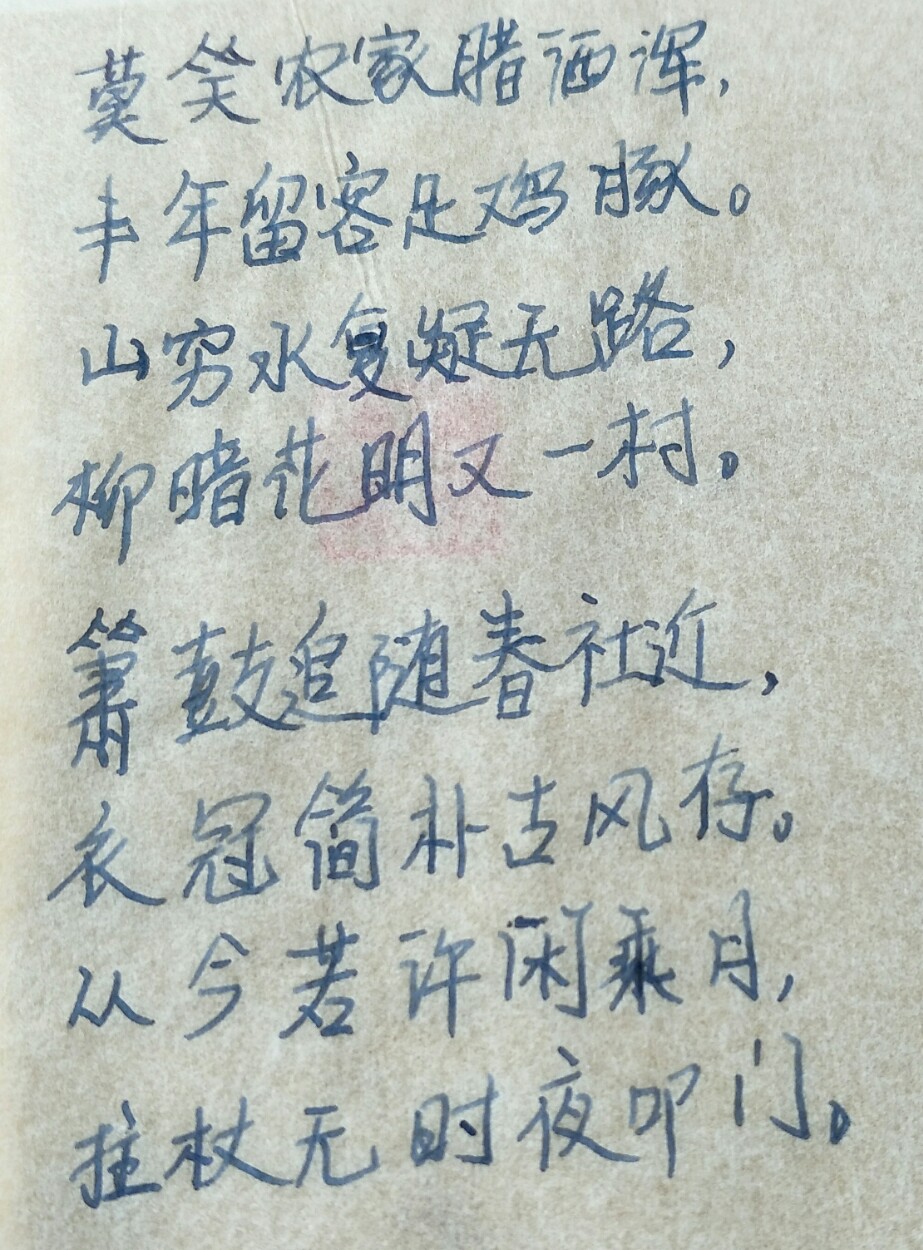 莫笑农家腊酒浑，
丰年留客足鸡豚。
山穷水复疑无路，
柳暗花明又一村。
箫鼓追随春社近，
衣冠简朴古风存。
从今若许闲乘月，
拄杖无时夜叩门。